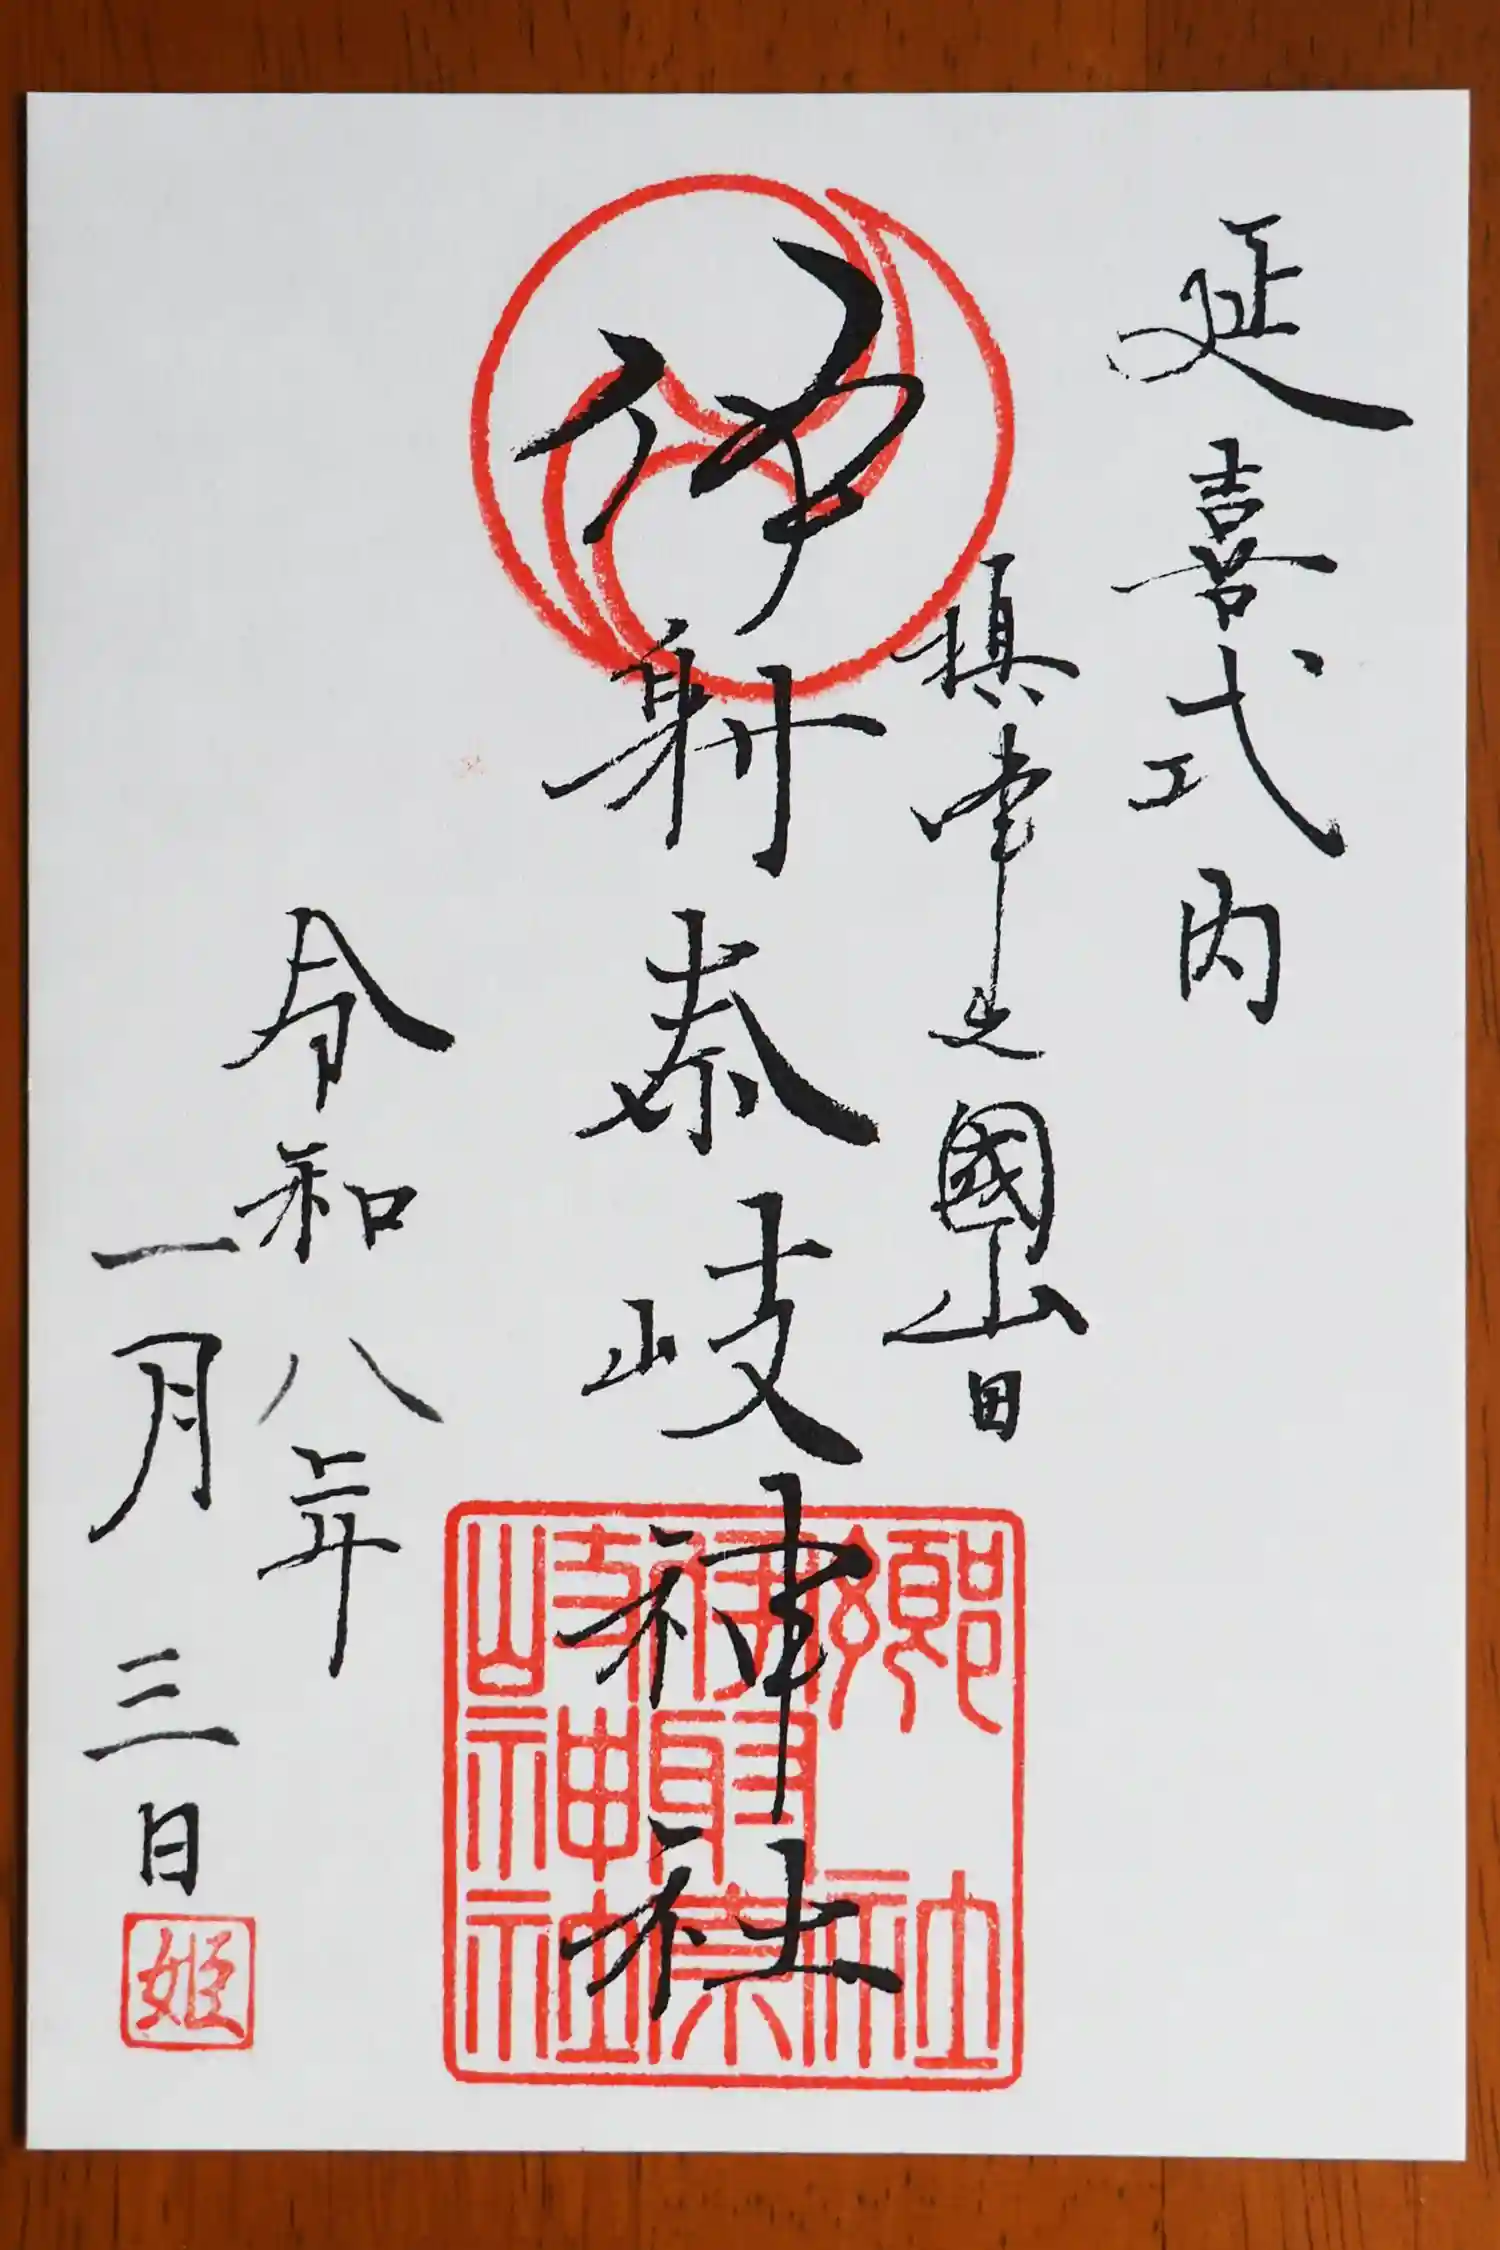 延喜式内
摂津之國山田
伊射奈岐神社
令和八年
一月三日
郷社
伊射奈
岐神社
姫